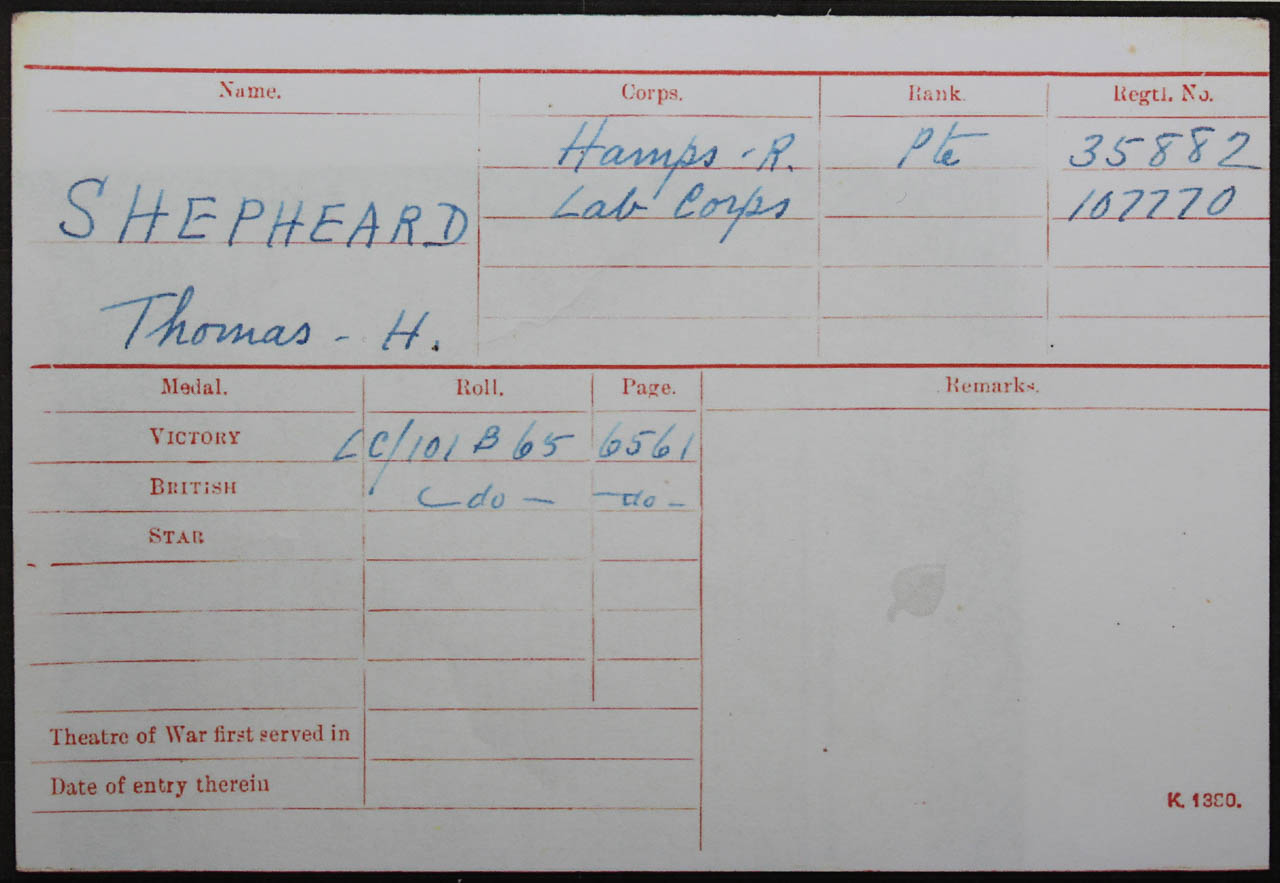 Name. Corps. Rank. Regtl. No.
Hamps - R. Pte 35882
SHEPHEARD Lab Corps 107770
Thomas - H.
Medal. Roll. Page. Remarks.
VICTORY LC/101 B 65 6561
BRITISH -do- -do-
STAR
Theatre of War first served in
Date of entry therein
K. 1380.